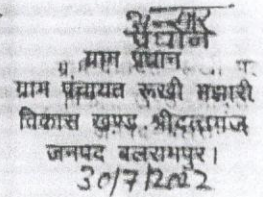 प्रधान
ग्राम प्रधान
ग्राम पंचायत रूखी मझारी
विकास खण्ड श्रीदत्तगंज
जनपद बलरामपुर।
30/7/2022